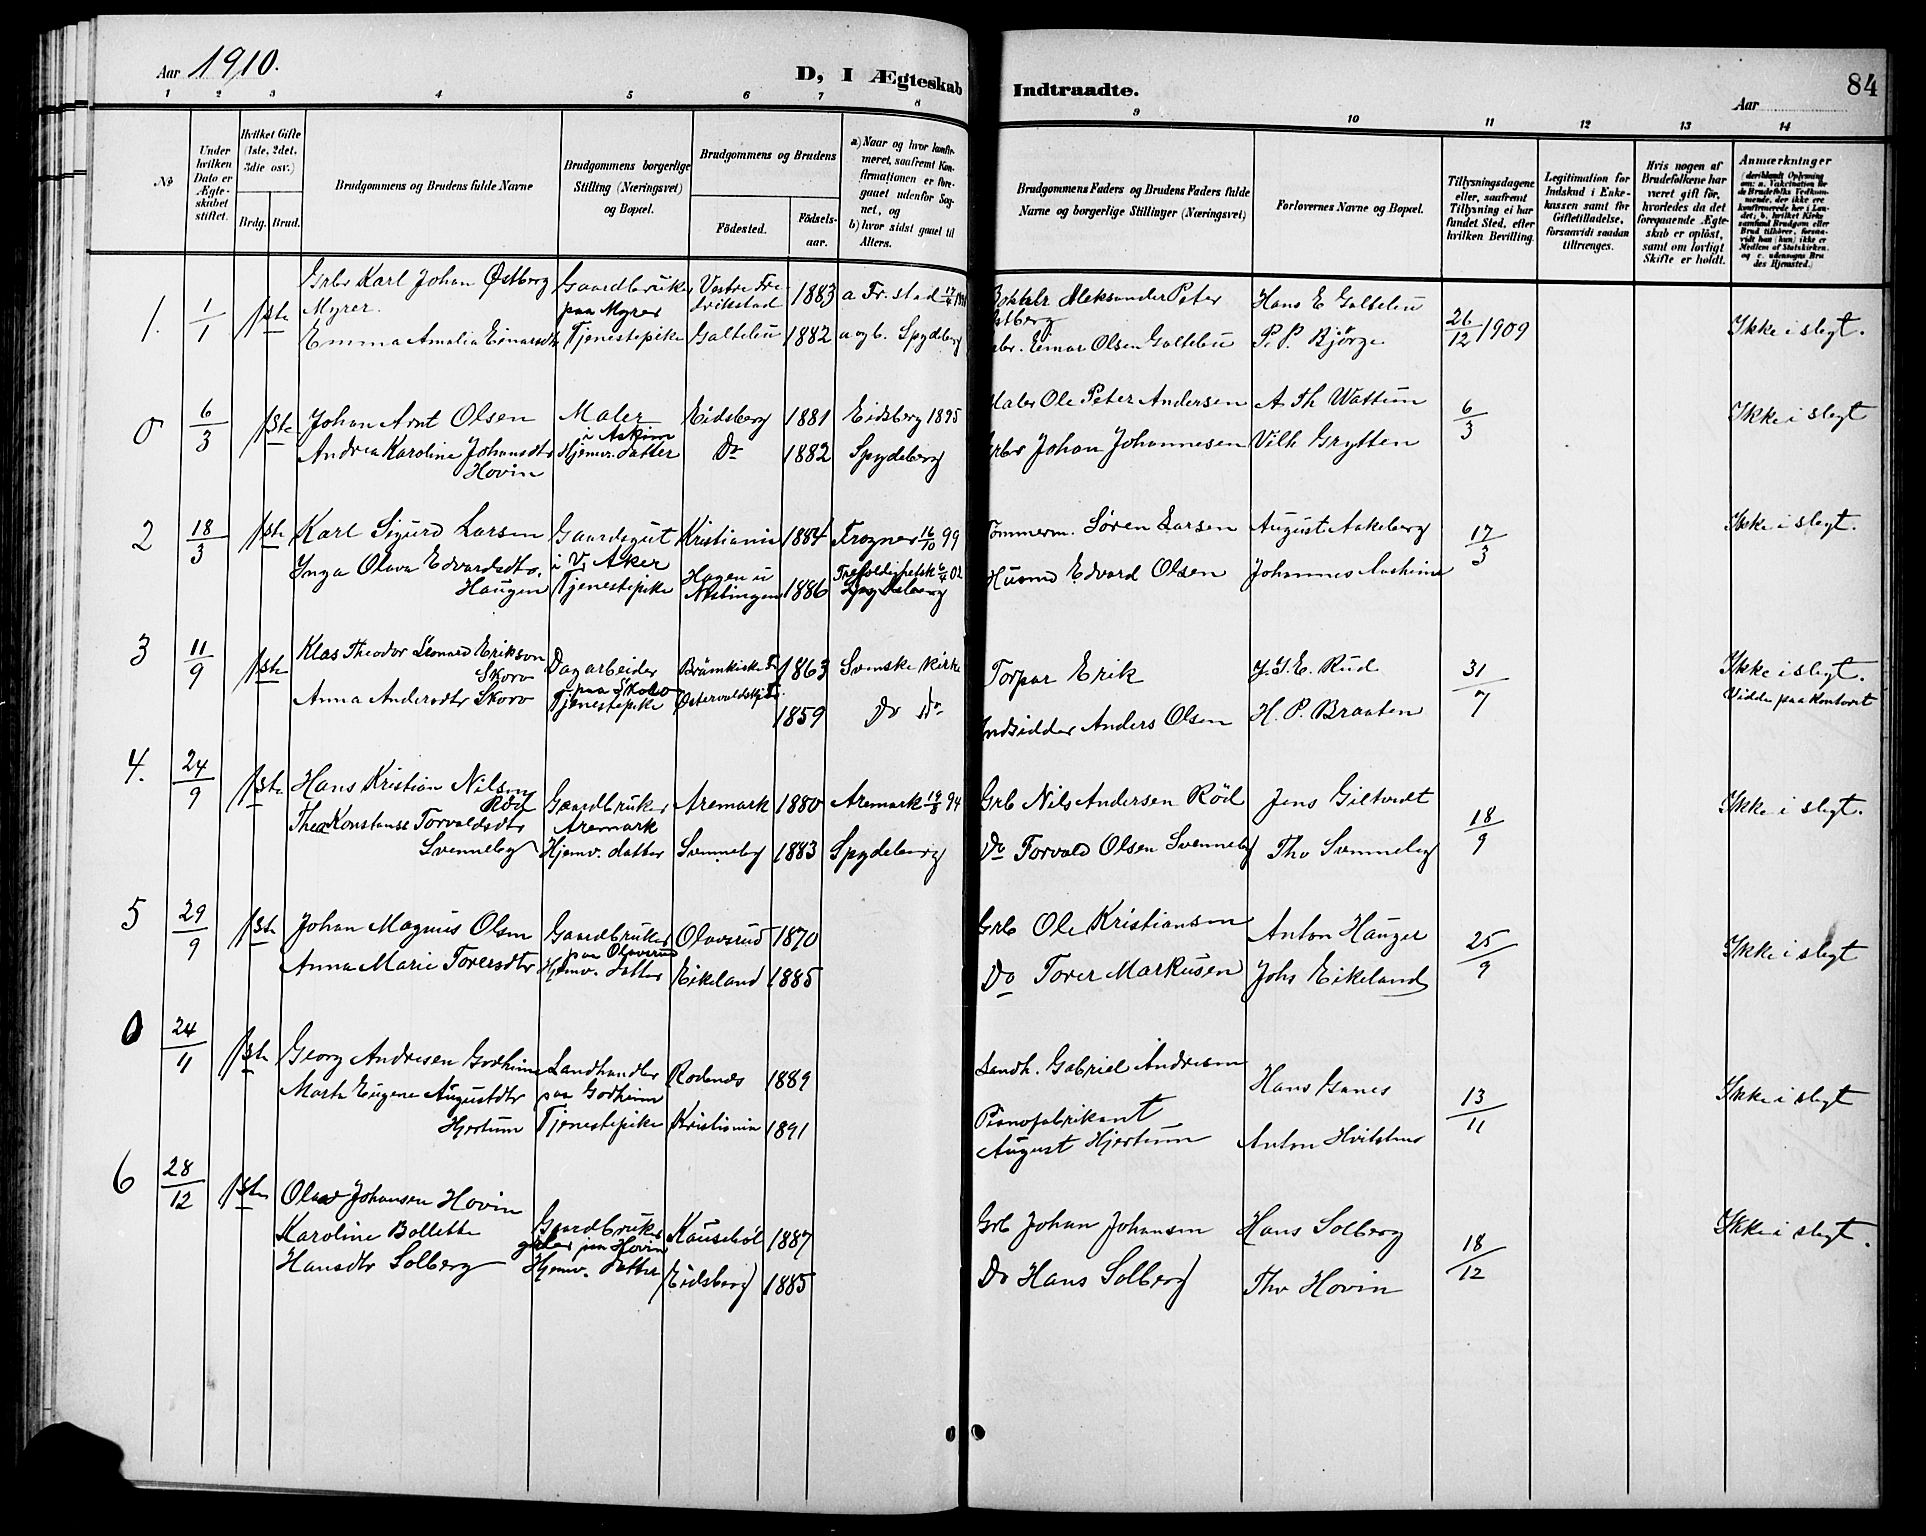 Aar 1910.
D, I Ægteskab Indtraadte.
84
Aar
1 2 3 4 5 6 7 8 9 10 11 12 13 14
No
Under hvilken Dato er Ægteskabet stiftet.
Hvilket Gifte (1ste, 2det, 3die osv.)
Brdg. Brud.
Brudgommens og Brudens fulde Navne
Brudgommens borgerlige Stilling (Næringsvei) og Bopæl.
Brudgommens og Brudens
Födested. Födselsaar.
a) Naar og hvor konfirmeret, saafremt Konfirmationen er foregaaet udenfor Sognet, og
b) hvor sidst gaaet til Alters.
Brudgommens Faders og Brudens Faders fulde Navne og borgerlige Stillinger (Næringsvei)
Forlovernes Navne og Bopæl.
Tillysningsdagene eller, saafremt Tillysning ei har fundet Sted, efter hvilken Bevilling.
Legitimation for Indskud i Enkekassen samt for Giftetilladelse, forsaavidt saadan tiltrænges.
Hvis nogen af Brudefolkene har været gift för, hvorledes da det foregaaende Ægteskab er oplöst, samt om lovligt Skifte er holdt.
Anmærkninger (deriblandt Oplysning om: a. Vakcination for de Brudefolks Vedkommende, der ikke ere konfirmerede her i Landet; b. hvilket Kirkesamfund Brudgom eller Brud tilhörer, forsaavidt han (hun) ikke er Medlem af Statskirken, og c. udensogns Brudes Hjemsted.)
1. 1/1 1ste Grbr Karl Johan Østberg Gaardbruker Vestre Fredrikstad 1883 a Fr.stad Aleksander Peter Hans E Galteleu 26/12 1909 Ikke i slegt.
Myrer. paa Myrer Østberg
Emma Amalia Einarsdtr Tjenestepike Galteleu 1882 a og b. Spydeberg Einar Olsen Galteleu P. P. Bjørge
0 6/3 1ste Johan Arnt Olsen Maler Eidsberg 1881 Eidsberg 1895 Maler Ole Peter Andersen A Th Wattum 6/3 Ikke i slegt
i Askim
Andrea Karoline Johansdtr Hjemv. datter Do 1882 Spydeberg Grbr Johan Johannesen Vilh Grytten
Hovin
2 18/3 1ste Karl Sigurd Larsen Gaardsgut Kristiania 1884 Frogner 16/10 99 Tömmerm. Søren Larsen August Askeberg 17/3 Ikke i slegt.
i V. Aker
Inga Olava Edvardsdtr. Tjenestepike Hagen u 1886 Spydeberg Husmd Edvard Olsen Johannes Aasheim
Haugen
3 11/9 1ste Klas Theodor Leonard Erikson Dagarbeider 1863 Svenske kirke Torpar Erik J. S. E. Rud 31/7 Ikke i slegt.
Skoro paa Skoro Vidde paa kontoret
Anna Andersdtr Skoro Tjenestepike 1859 Do Do Indsidder Anders Olsen H. P. Braaten
4. 24/9 1ste Hans Kristian Nilsen Gaardbruker Aremark 1880 Aremark 94 Grb Nils Andersen Röd Jens Giltvedt 18/9 Ikke i slegt.
Röd Aremark
Thea Konstanse Torvaldsdtr Hjemv. datter Svenneby 1883 Spydeberg Do Torvald Olsen Svenneby Thv Svenneby
Svenneby
5 29/9 1ste Johan Magnus Olsen Gaardbruker Olavsrud 1870 Grb Ole Kristiansen Anton Hauger 25/9 Ikke i slegt
paa Olavsrud
Anna Marie Torersdtr Hjemv. datter Eikeland 1885 Do Torer Markusen Johs Eikeland
0 24/11 1ste Georg Andresen Godheim Landhandler Rodenes 1889 Landh. Gabriel Andresen Hans Ganes 13/11 Ikke i slegt
paa Godheim
Marta Eugene Augustdtr Tjenestepike Kristiania 1891 Pianofabrikant Anton
Hjertum August Hjertum
6 28/12 1ste Olav Johansen Hovin Gaardbruker 1887 Grb Johan Johansen Hans Solberg 18/12 Ikke i slegt.
paa Hovin
Karoline Bollette Hjemv. datter Eidsberg 1885 Do Hans Solberg Thv Hovin
Hansdtr Solberg